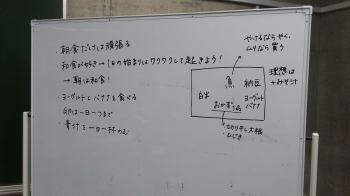 ・朝食だけは頑張る
・和食が好き→1日の始まりはワクワクして起きよう!
→朝は和食!
・ヨーグルトとバナナを食べる
・卵は一日一つまで
・青汁を一日一杯のむ
やけるならやく、
ムリなら買う
魚
納豆
白米
ヨーグルト
バナナ
おかず1品
理想は
+みそ汁
切り干し大根
ひじき